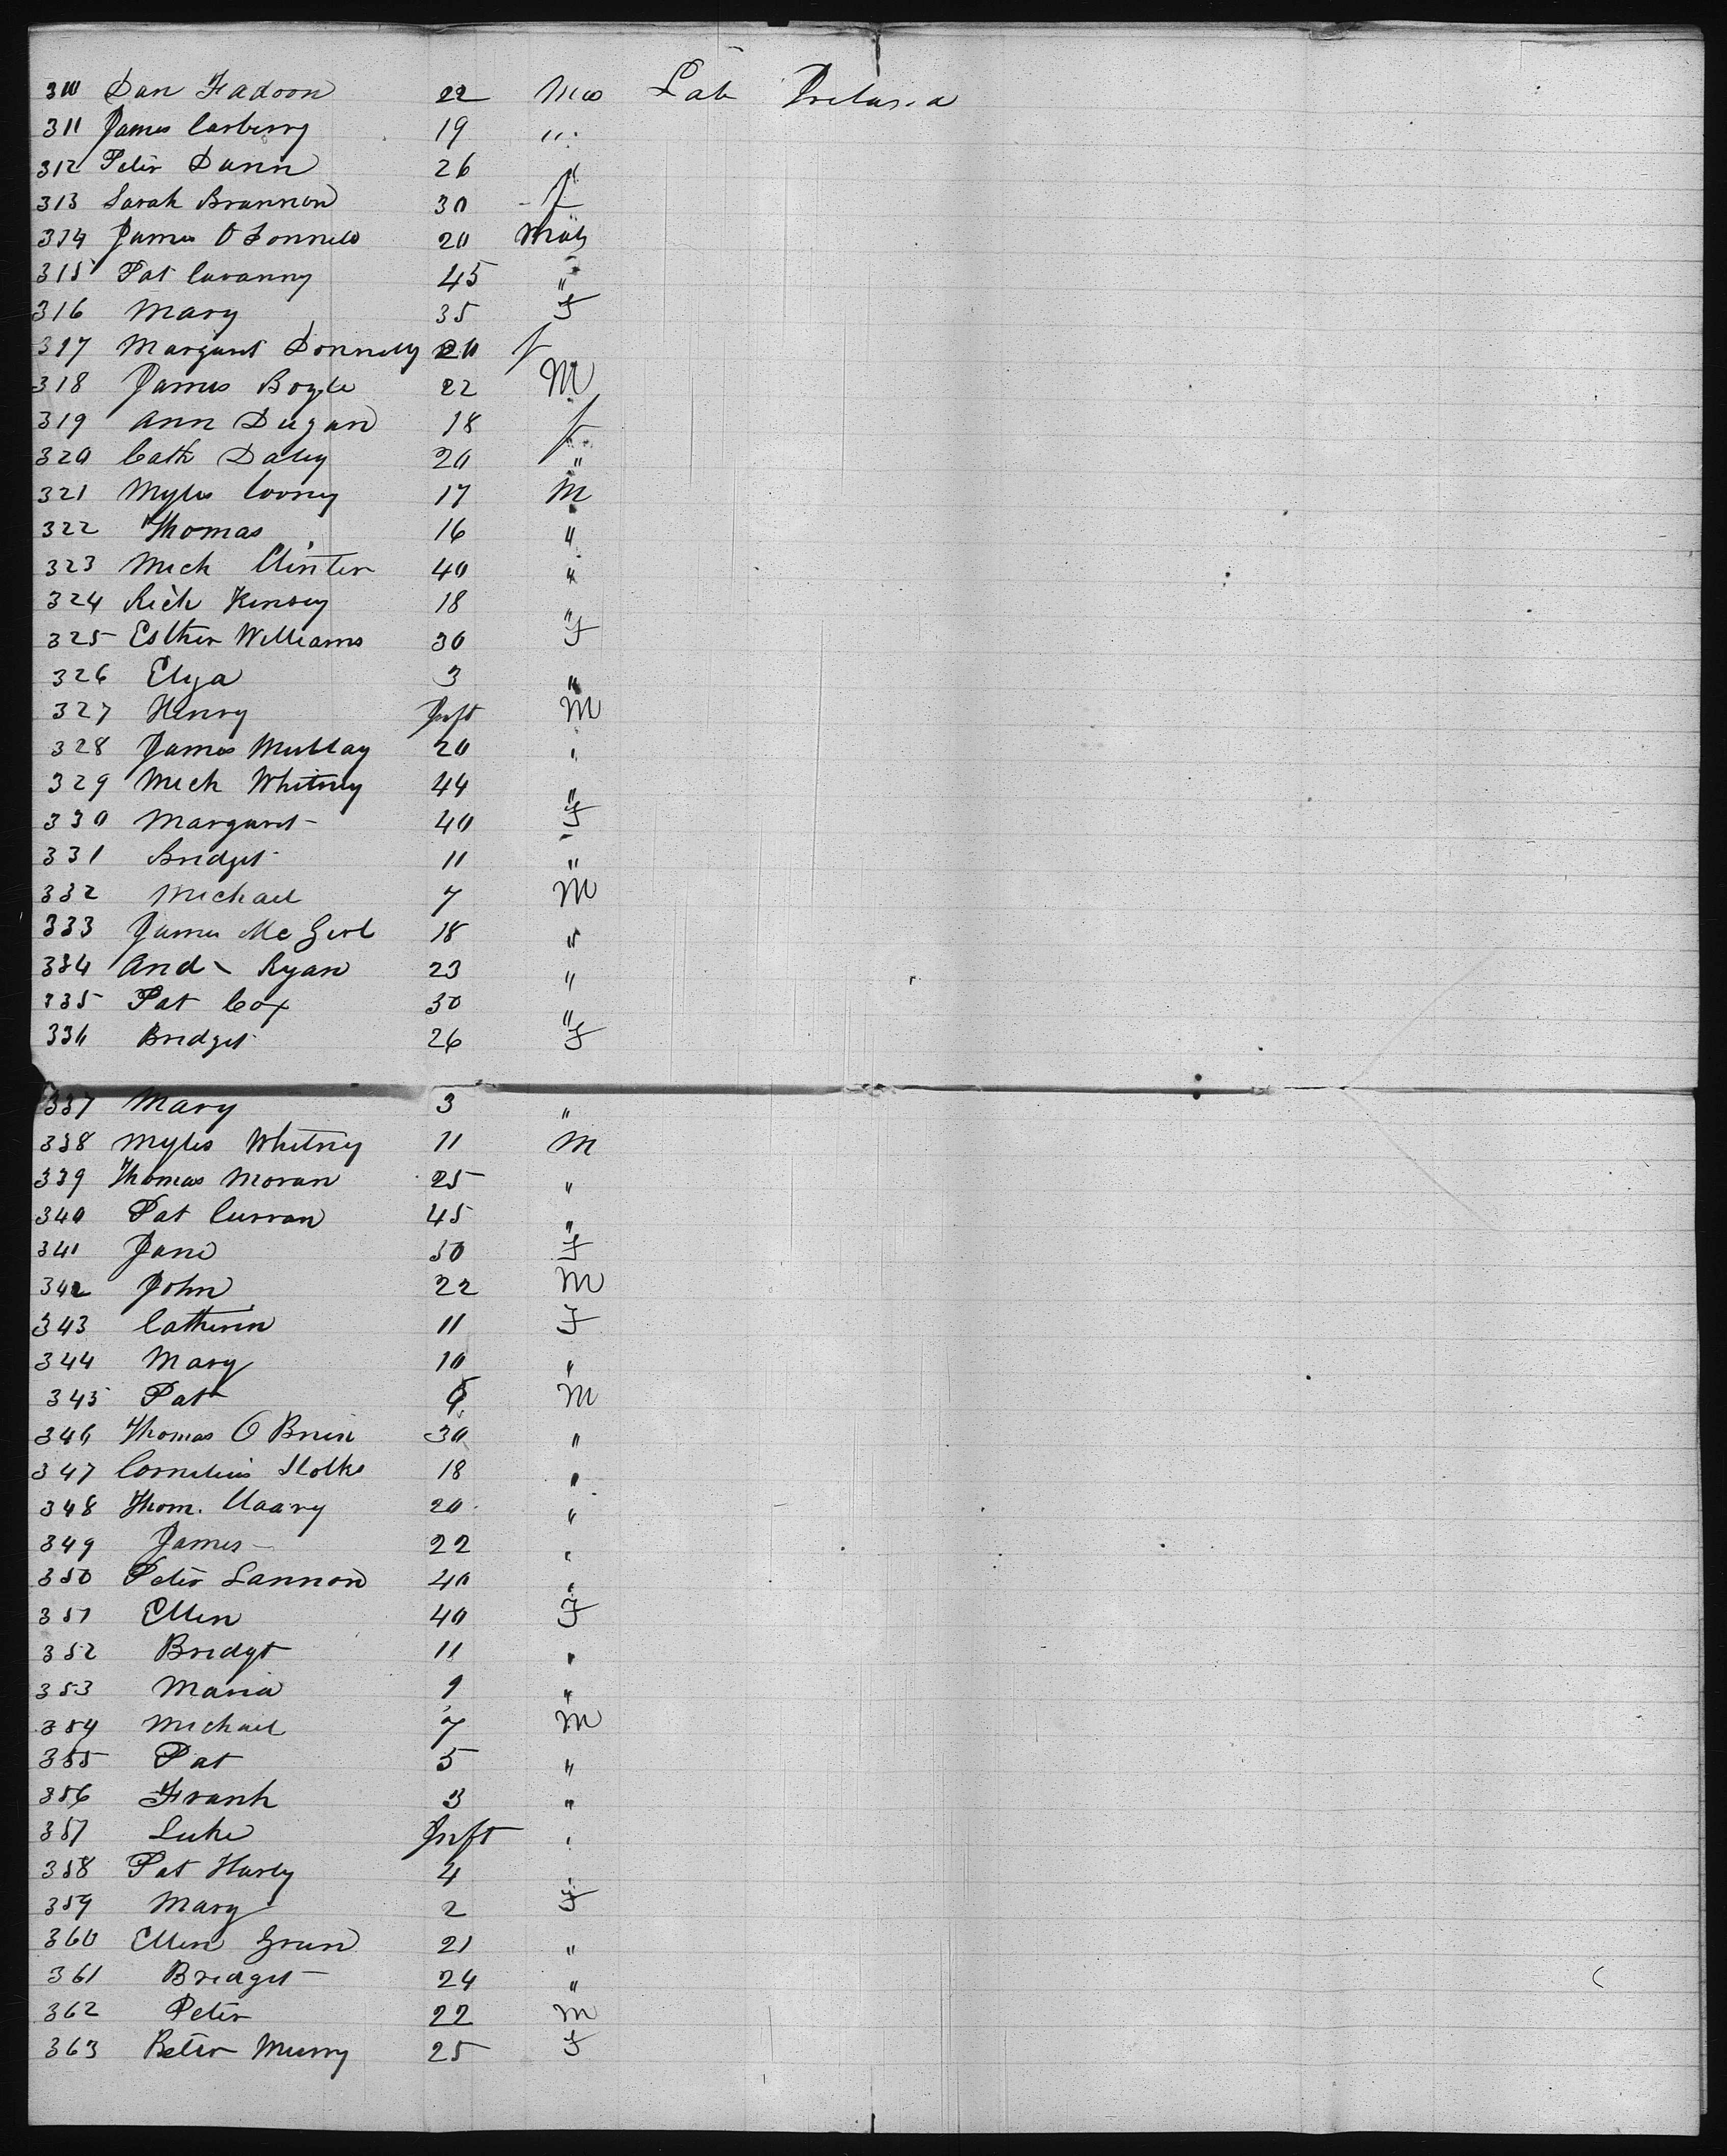 310 Dan Fadoon 22 M Lab
311 James Carberry 19 "
312 Peter Dunn 26 "
313 Sarah Brannon 30 f
314 James O Donnell 20 Male
315 Pat Cavanny 45 "
316 Mary 35 F
317 Margaret Donnelly 20 f
318 James Boyle 22 M
319 Ann Dugan 18 f
320 Cath Daley 20 "
321 Myles Cooney 17 M
322 Thomas 16 "
323 Mich Clinton 40 "
324 Rich Kinsey 18 "
325 Esther Williams 30 F
326 Elya 3 "
327 Henry Inft M
328 James Mullay 20 "
329 Mich Whitney 44 "
330 Margaret 40 F
331 Bridget 11 "
332 Michael 7 M
333 James Mc Girl 18 "
334 And Ryan 23 "
335 Pat Cox 30 "
336 Bridget 26 F
337 Mary 3 "
338 Myles Whitney 11 M
339 Thomas Moran 25 "
340 Pat Curran 45 "
341 Jane 50 F
342 John 22 M
343 Catherin 11 F
344 Mary 10 "
345 Pat M
346 Thomas O Brien 30 "
347 Cornelius 18 "
348 Thom. 20 "
349 James 22 "
350 Peter Lannon 40 "
351 Ellen 40 F
352 Bridgt 11 "
353 Maria 9 "
354 Michael 7 M
355 Pat 5 "
356 Frank 3 "
357 Luke Inft "
358 Pat Hurly 4 "
359 Mary 2 F
360 Ellen Green 21 "
361 Bridget 24 "
362 Peter 22 M
363 Peter Murry 25 F